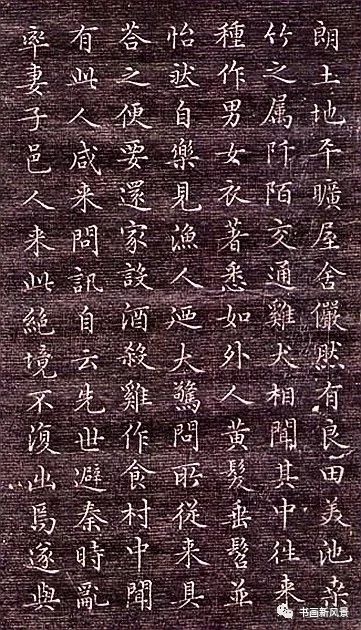 朗土地平曠屋舍儼然有良田美池桒
竹之属阡陌交通雞犬相聞其中往来
種作男女衣著悉如外人黄髮垂髫並
怡然自樂見漁人迺大驚問所從来具
荅之便要還家設酒殺雞作食村中聞
有此人咸来問訊自云先世避秦時亂
率妻子邑人来此絶境不復出焉遂與
书画新风景